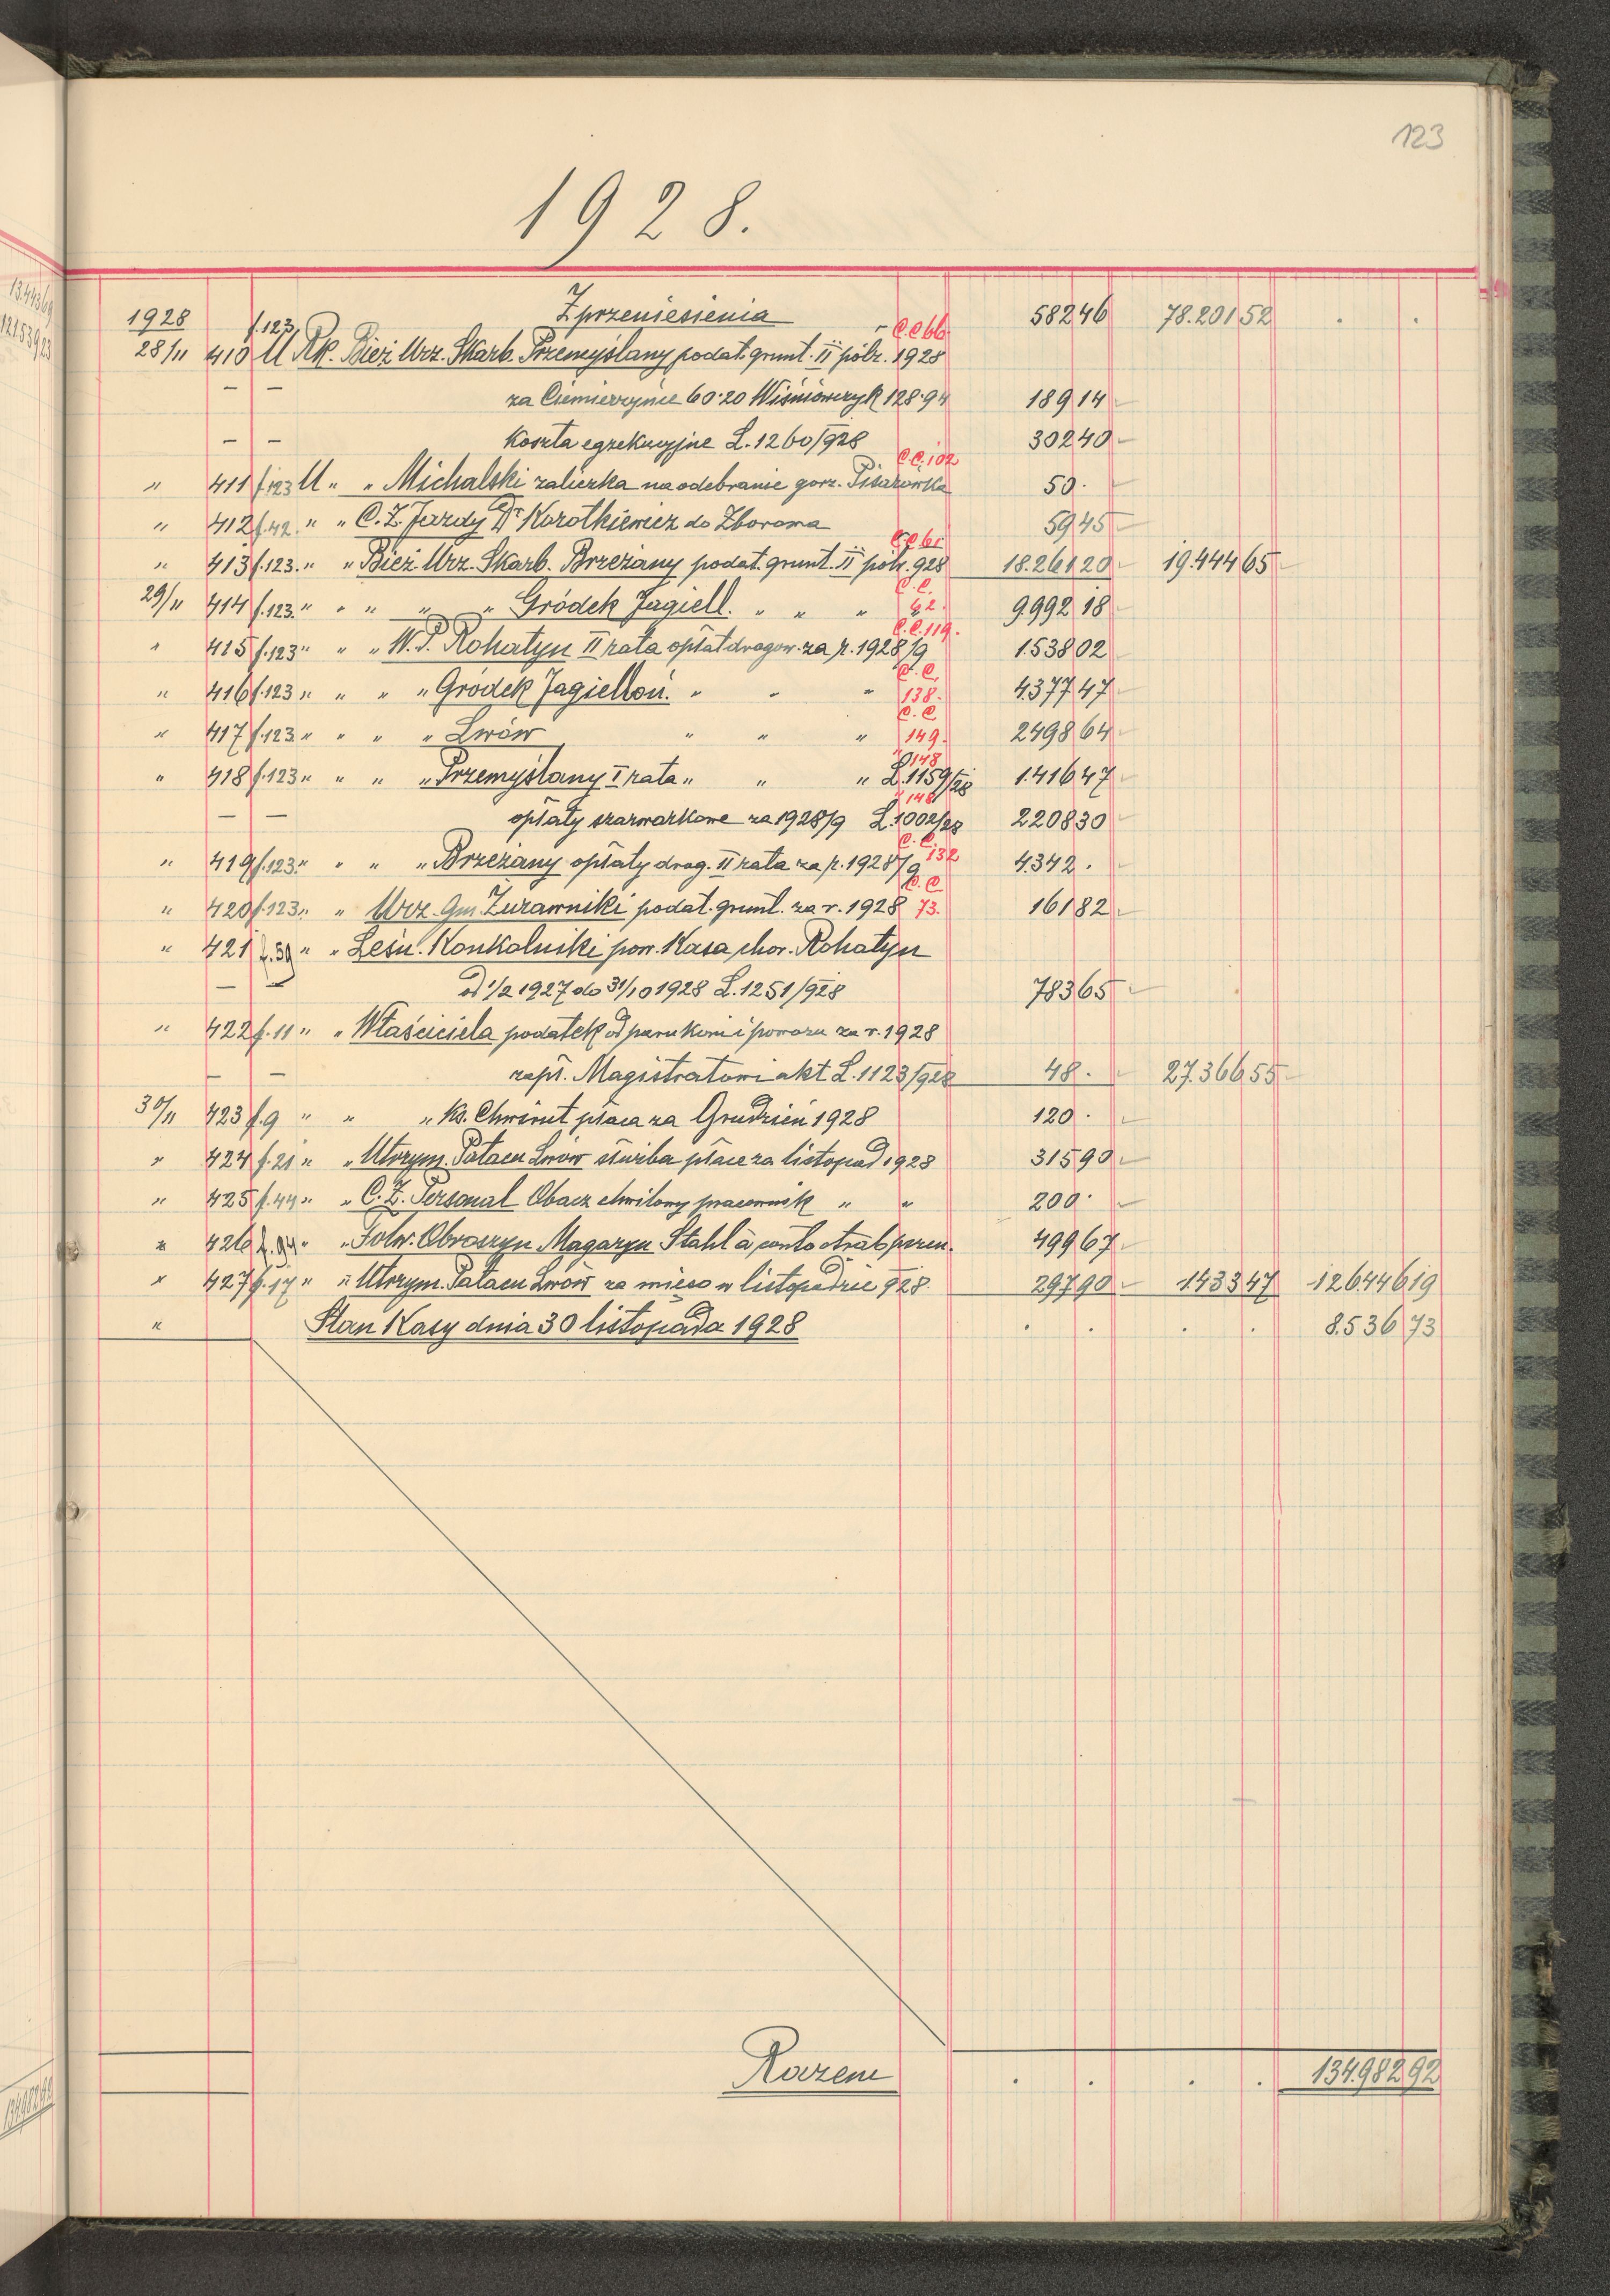 123
1928.
1344369
12153923
1928 Z przeniesienia 582 46 78.201 52 . .
28/11 410 f.123 U Rk. Bież. Urz. Skarb. Przemyślany podat. grunt. II półr. 1928 C.C 66.
— — za Ciemierzyńce 60·20 Wiśniowczyk 128·94 189 14
— — Koszta egzekucyjne L. 1260/928 302 40
" 411 f.123 U " " Michalski zaliczka na odebranie gorz. Pisarówka C.C. 102 50 .
" 412 f.42. " " C.Z. Jazdy Dr Korotkiewicz do Zborowa 59 45
" 413 f.123. " " Bież. Urz. Skarb. Brzeżany podat. grunt. II półr. 928 C.C 61 18.261 20 19.444 65
29/11 414 f.123. " " " " " Gródek Jagiell. " " " C.C. 62. 9.992 18
" 415 f.123 " " " W.P. Rohatyn II rata opłat drogow. za r. 1928/9 C.C. 119. 1.538 02
" 416 f.123 " " " " Gródek Jagielloń. " " " C.C. 138. 4.377 47
" 417 f.123 " " " " Lwów " " " C.C. 149. 2498 64
" 418 f.123 " " " " Przemyślany I rata " " " L. 1159/28 " 148 1.416 47
— — opłaty szarwarkowe za 1928/9 L. 1002/28 " 148 2208 30
" 419 f.123. " " " " Brzeżany opłaty drog. II rata za r. 1928/9 C.C. 132 4.342 .
" 420 f.123 " " Urz. Gm. Żurawniki podat. grunt. za r. 1928 C.C 73. 161 82
" 421 f.39 " " Leśn. Konkolniki pow. Kasa chor. Rohatyn
— — od 1/2 1927 do 31/10 1928 L. 1251/928 783 65
" 422 f.11 " " Właściciela podatek od paru koni i powozu za r. 1928
— — zapł. Magistratowi akt L. 1123/928 48 . 27.366 55
30/11 423 f.9 " " " Ks. Chwirut płaca za Grudzień 1928 120 .
" 424 f.21 " " Utrzym. Pałacu Lwów służba płace za listopad 1928 315 90
" 425 f.44 " " C.Z. Personal Obacz chwilowy pracownik " " 200 .
" 426 f.94 " " Folw. Obroszyn Magazyn Stahl à conto otrąb pszen. 499 67
" 427 f.17 " " Utrzym. Pałacu Lwów za mięso w listopadzie 928 297 90 1433 47 126446 19
" Stan Kasy dnia 30 listopada 1928 . . . . 8.536 73
Razem . . . . 134.982 92
13498292